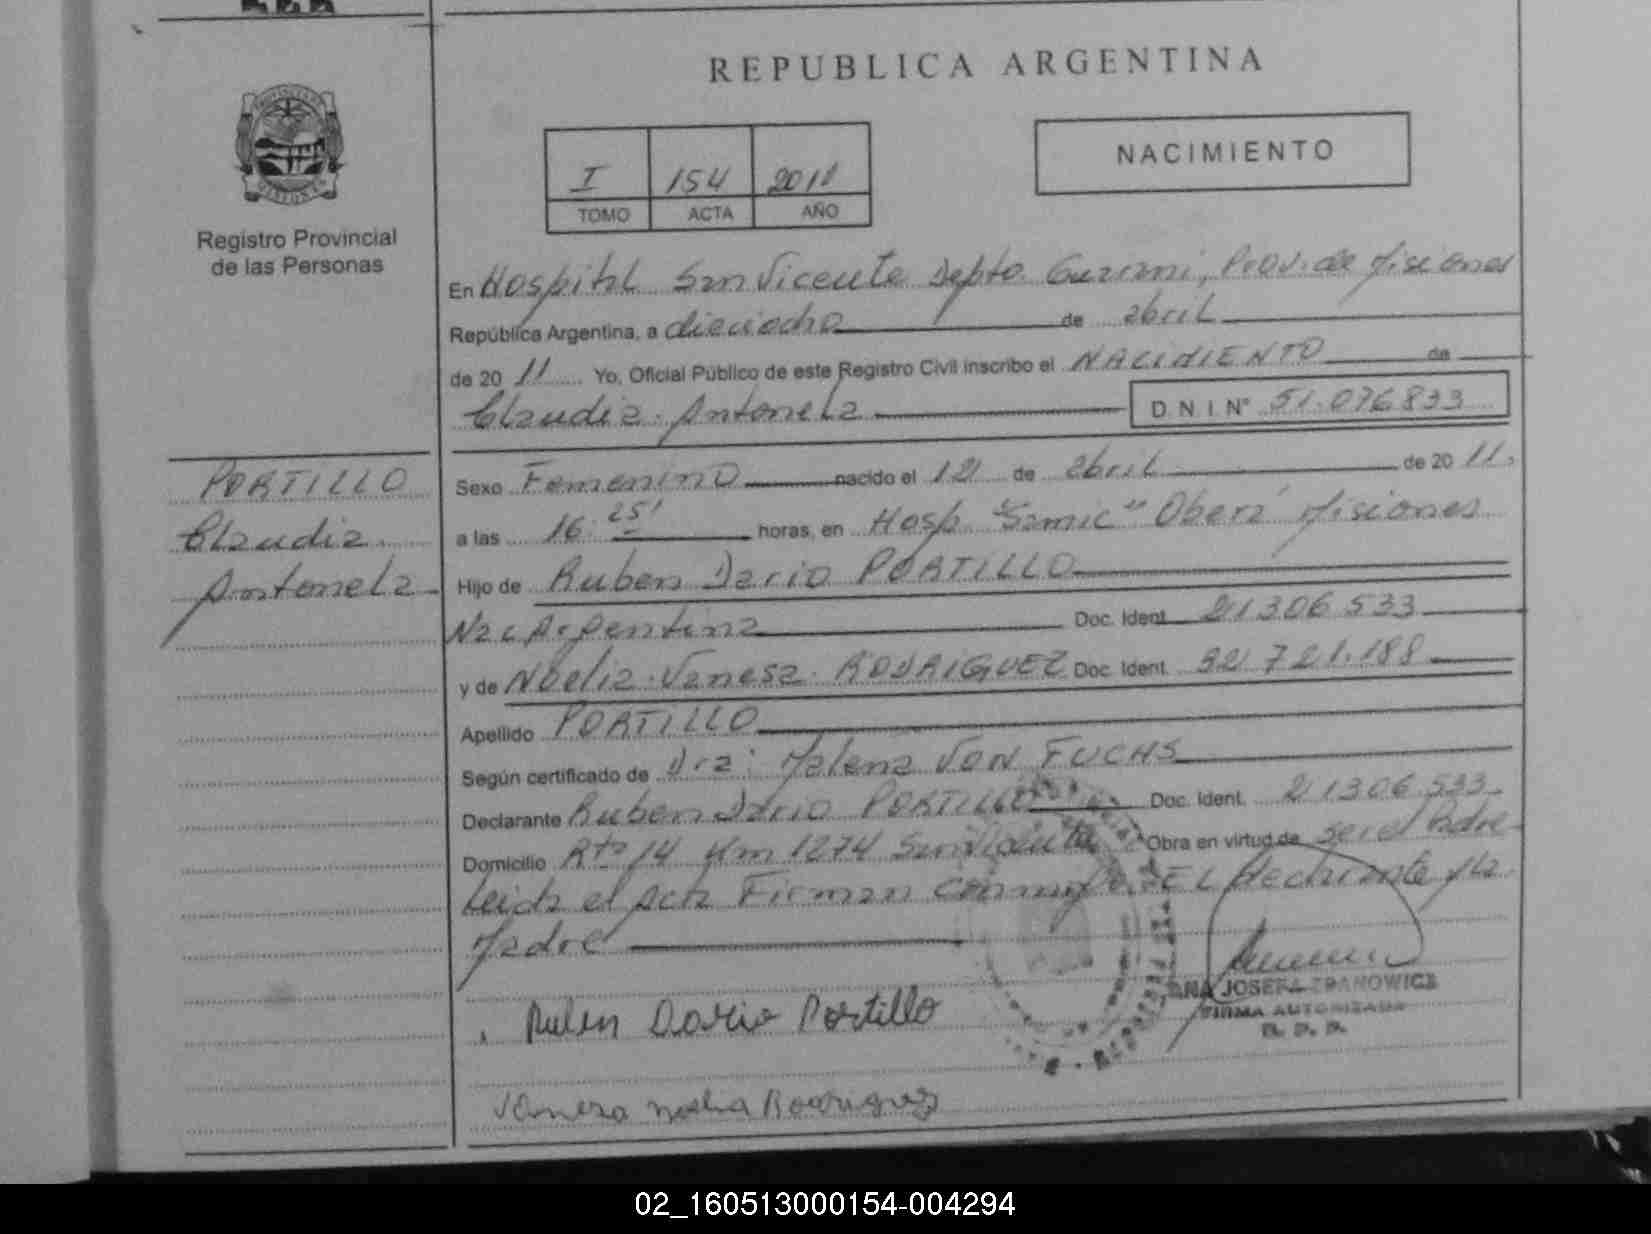 REPUBLICA ARGENTINA
NACIMIENTO
I 154 2011
TOMO ACTA AÑO
Registro Provincial
de las Personas
En Hospital San Vicente Depto. Guarani, Prov. de Misiones
República Argentina, a dieciocho de abril
de 20 11 Yo, Oficial Público de este Registro Civil inscribo el NACIMIENTO de
Claudia Antonela D.N.I. N° 51.076.833
PORTILLO
Claudia
Antonela
Sexo Femenino nacido el 12 de abril de 20 11.
a las 16:25' horas, en Hosp. "Samic" Oberá Misiones
Hijo de Ruben Dario PORTILLO
Nac Argentina Doc. Ident. 21306533
y de Noelia Vanesa RODRIGUEZ Doc. Ident. 32 721.188
Apellido PORTILLO
Según certificado de Dra: Malena VON FUCHS
Declarante Ruben Dario PORTILLO Doc. Ident. 21306533
Domicilio Rta 14 Km 1274 San Vicente Obra en virtud de ser el Padre
Leida el Acta Firman conmigo EL declarante y la
Madre
Ruben Dario Portillo
ANA JOSEFA
FIRMA AUTORIZADA
R. P. P.
Vanesa Noelia Rodriguez
02_160513000154-004294